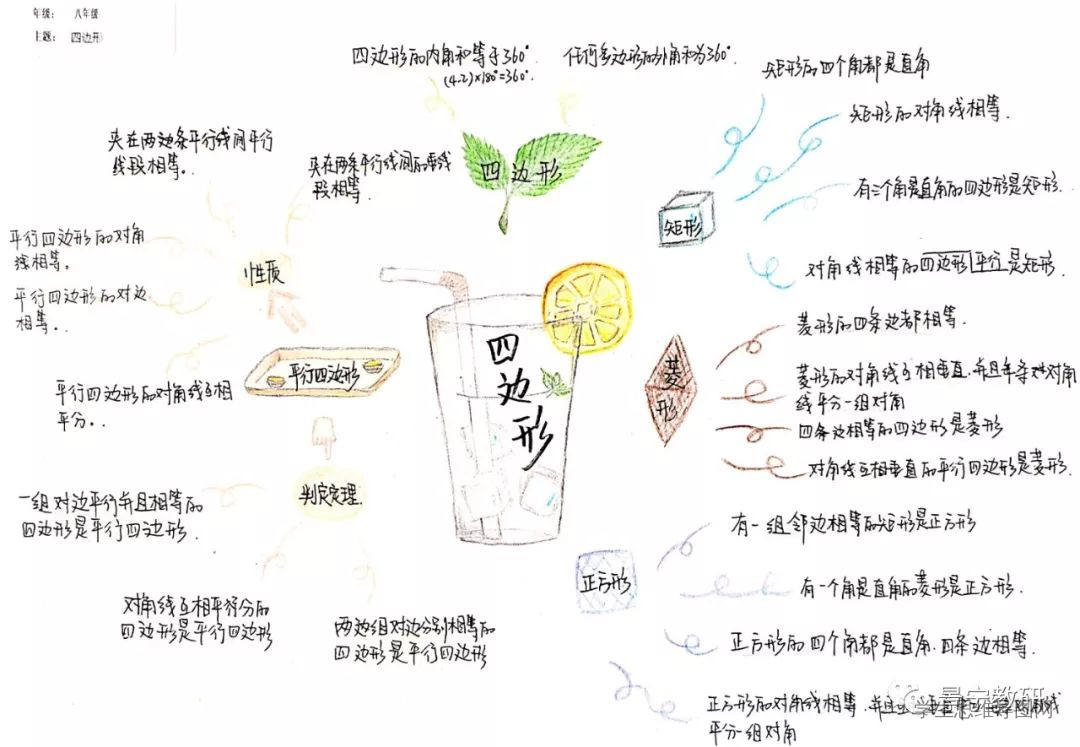 年级： 八年级
主题： 四边形
四边形的内角和等于360°
(4-2)×180°=360°
任何多边形的外角和为360°
四边形
四边形
夹在两边条平行线间平行
线段相等。
夹在两条平行线间的垂线
段相等。
平行四边形的对角
线相等。
平行四边形的对边
相等。
平行四边形的对角线互相
平分。
性质
平行四边形
判定定理.
一组对边平行并且相等的
四边形是平行四边形.
对角线互相平行分的
四边形是平行四边形
两边组对边分别相等的
四边形是平行四边形
矩形
矩形的四个角都是直角
矩形的对角线相等.
有三个角是直角的四边形是矩形.
对角线相等的四边形平行是矩形.
菱形
菱形的四条边都相等.
菱形的对角线互相垂直.并且每条对对角
线平分一组对角
四条边相等的四边形是菱形
对角线互相垂直的平行四边形是菱形.
正方形
有一组邻边相等的矩形是正方形
有一个角是直角的菱形是正方形.
正方形的四个角都是直角.四条边相等.
正方形的对角线相等.并且
平分一组对角
景宁教研
学生思维导图网